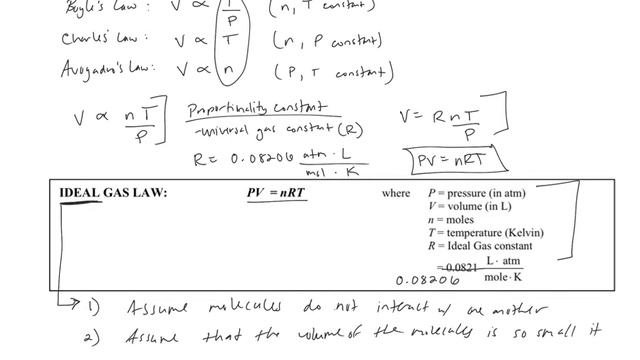 Boyle's Law: V ∝ 1/P (n, T constant)
Charles' Law: V ∝ T (n, P constant)
Avogadro's Law: V ∝ n (P, T constant)
V ∝ nT/P
Proportionality constant
-universal gas constant (R)
R = 0.08206 atm · L / mol · K
V = R nT/P
PV = nRT
IDEAL GAS LAW: PV = nRT where P = pressure (in atm)
V = volume (in L)
n = moles
T = temperature (Kelvin)
R = Ideal Gas constant
= 0.0821 L · atm / mole · K
0.08206
1) Assume molecules do not interact w/ one another
2) Assume that the volume of the molecules is so small it